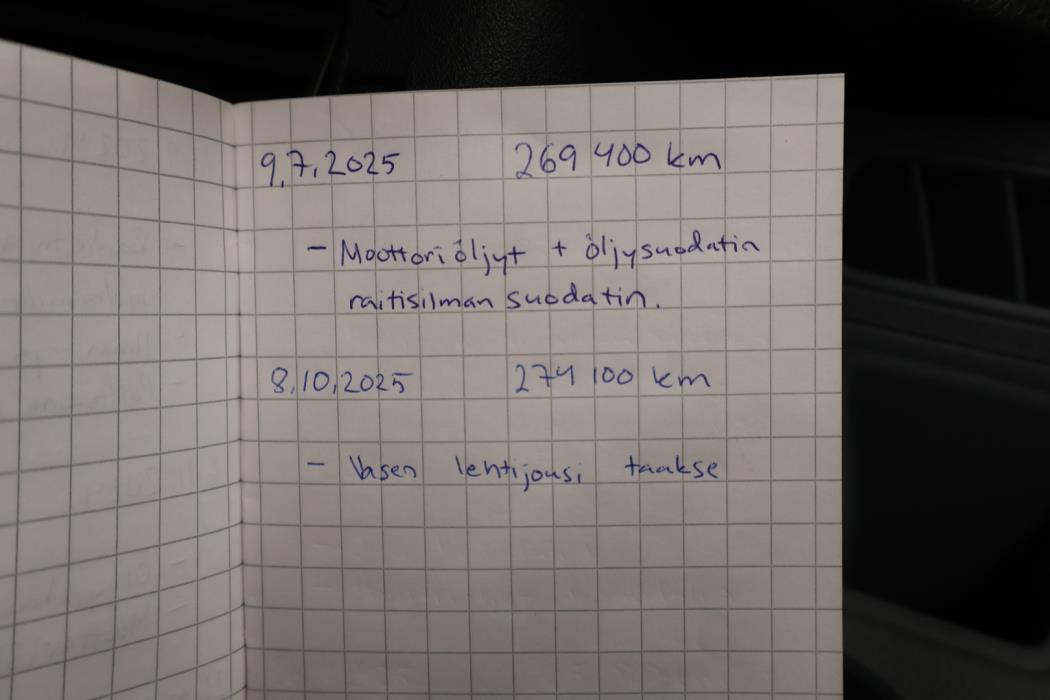 9.7.2025 269 400 km
- Moottoriöljyt + öljysuodatin
raitisilman suodatin.
8.10.2025 274 100 km
- Vasen lehtijousi taakse